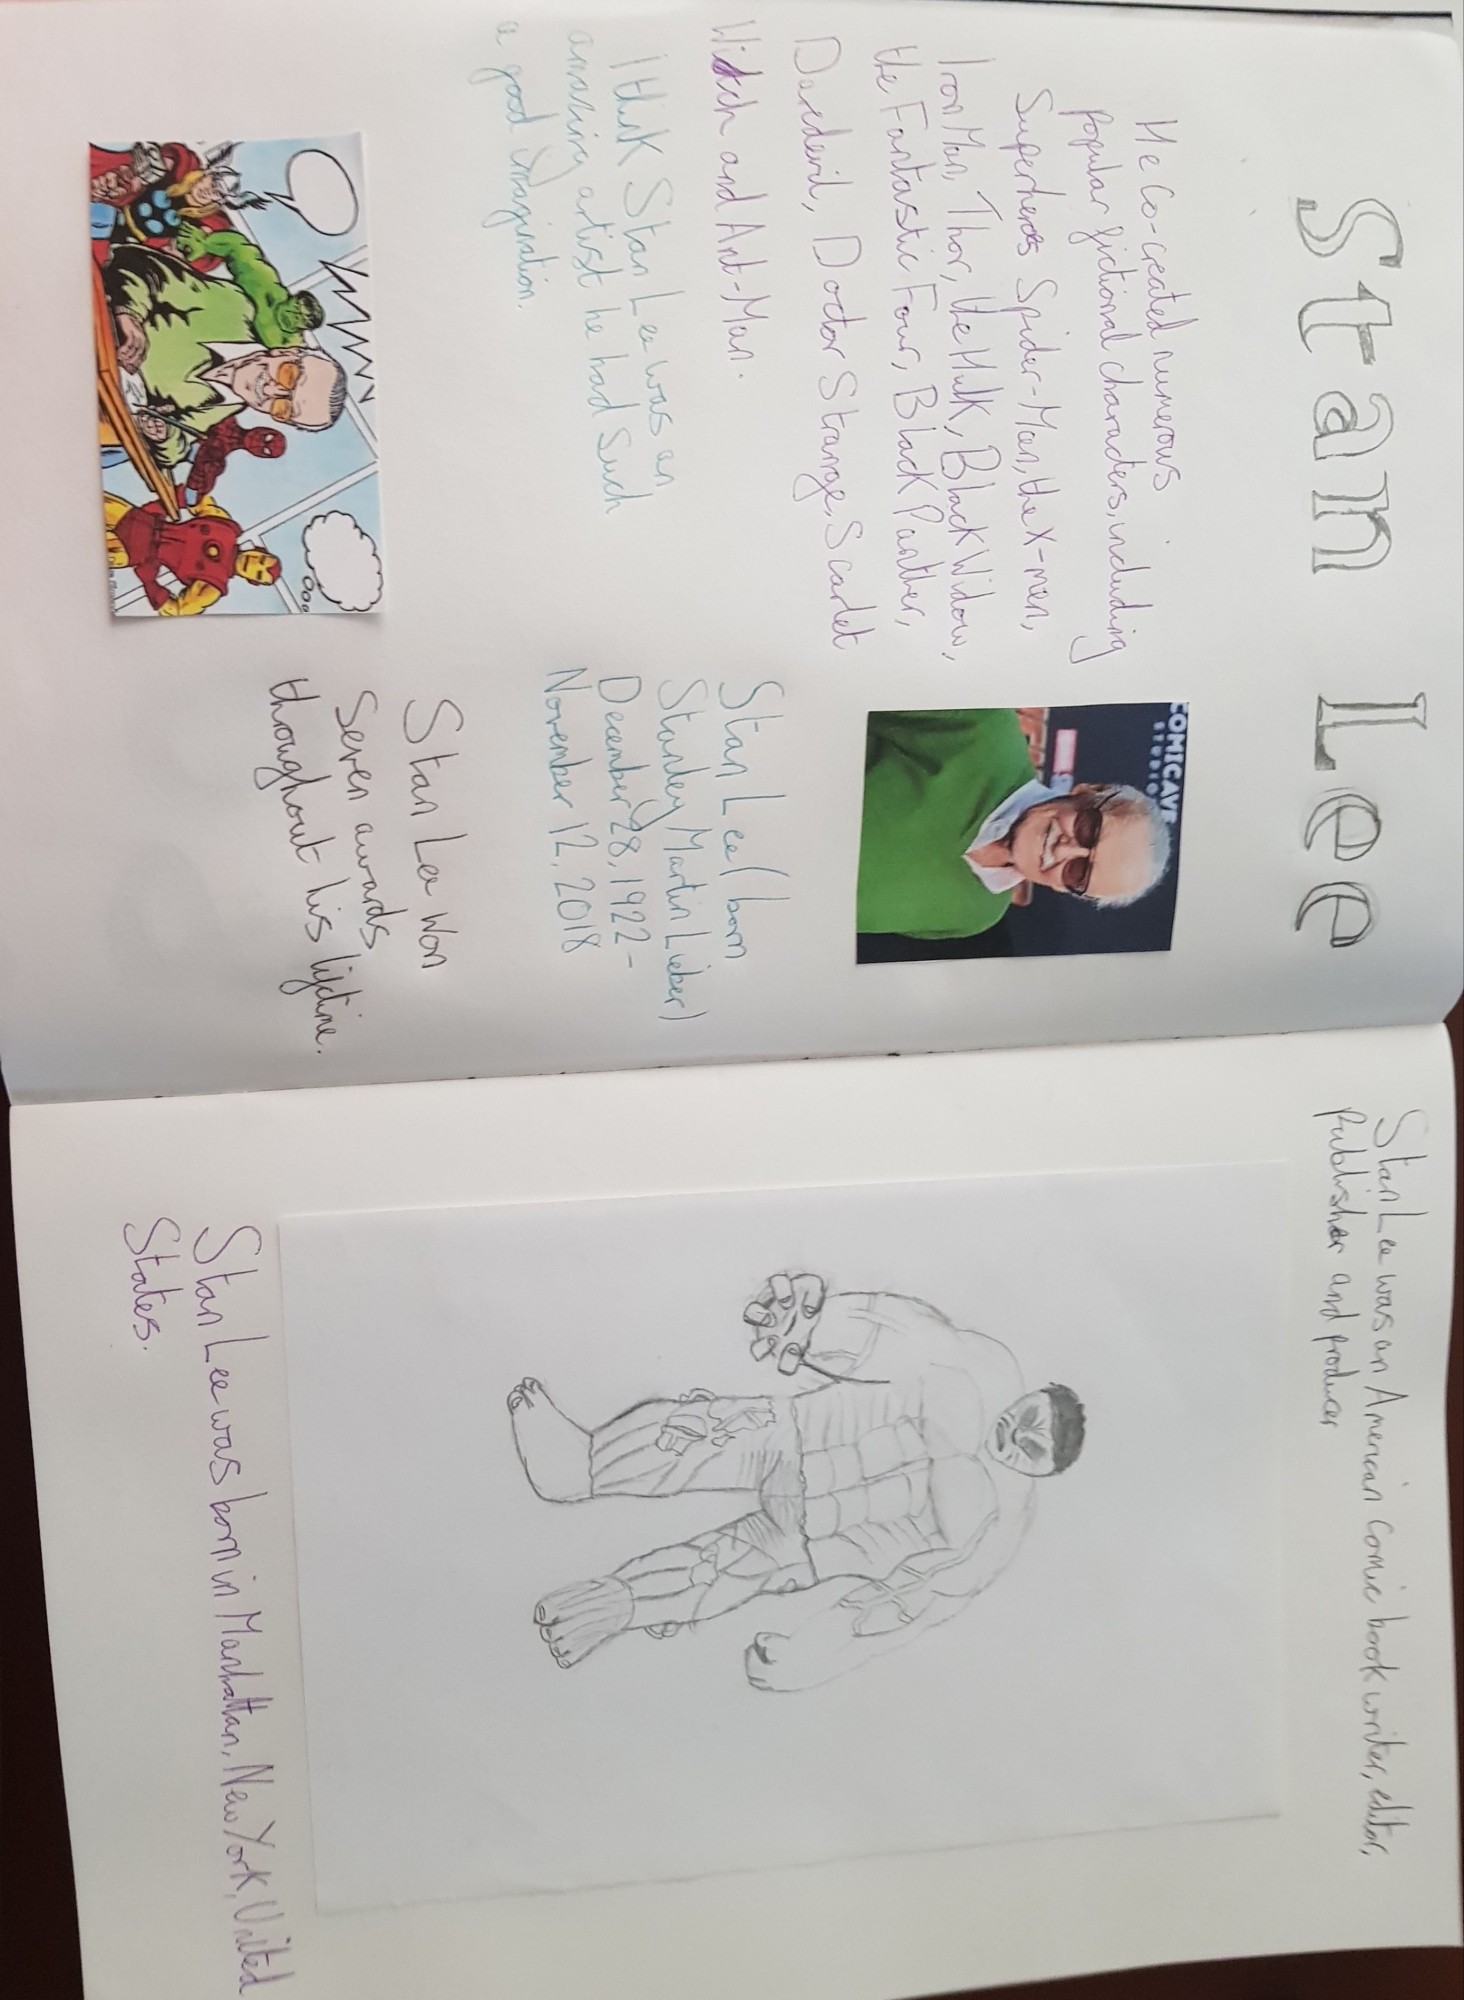 Stan Lee
He Co-created numerous
popular fictional characters, including
Superheros Spider-Man, the X-men,
Iron Man, Thor, the Hulk, Black Widow,
the Fantastic Four, Black Panther,
Daredevil, Doctor Strange, Scarlet
Witch and Ant-Man.
I think Stan Lee was an
amazing artist he had Such
a good Imagination.
COMICAVE
STUDIO
Stan Lee (born
Stanley Martin Lieber)
December 28, 1922 -
November 12, 2018
Stan Lee won
Seven awards
throughout his lifetime.
Stan Lee was an American comic book writer, editor,
publisher and producer
Stan Lee was born in Manhattan, New York, United
States.